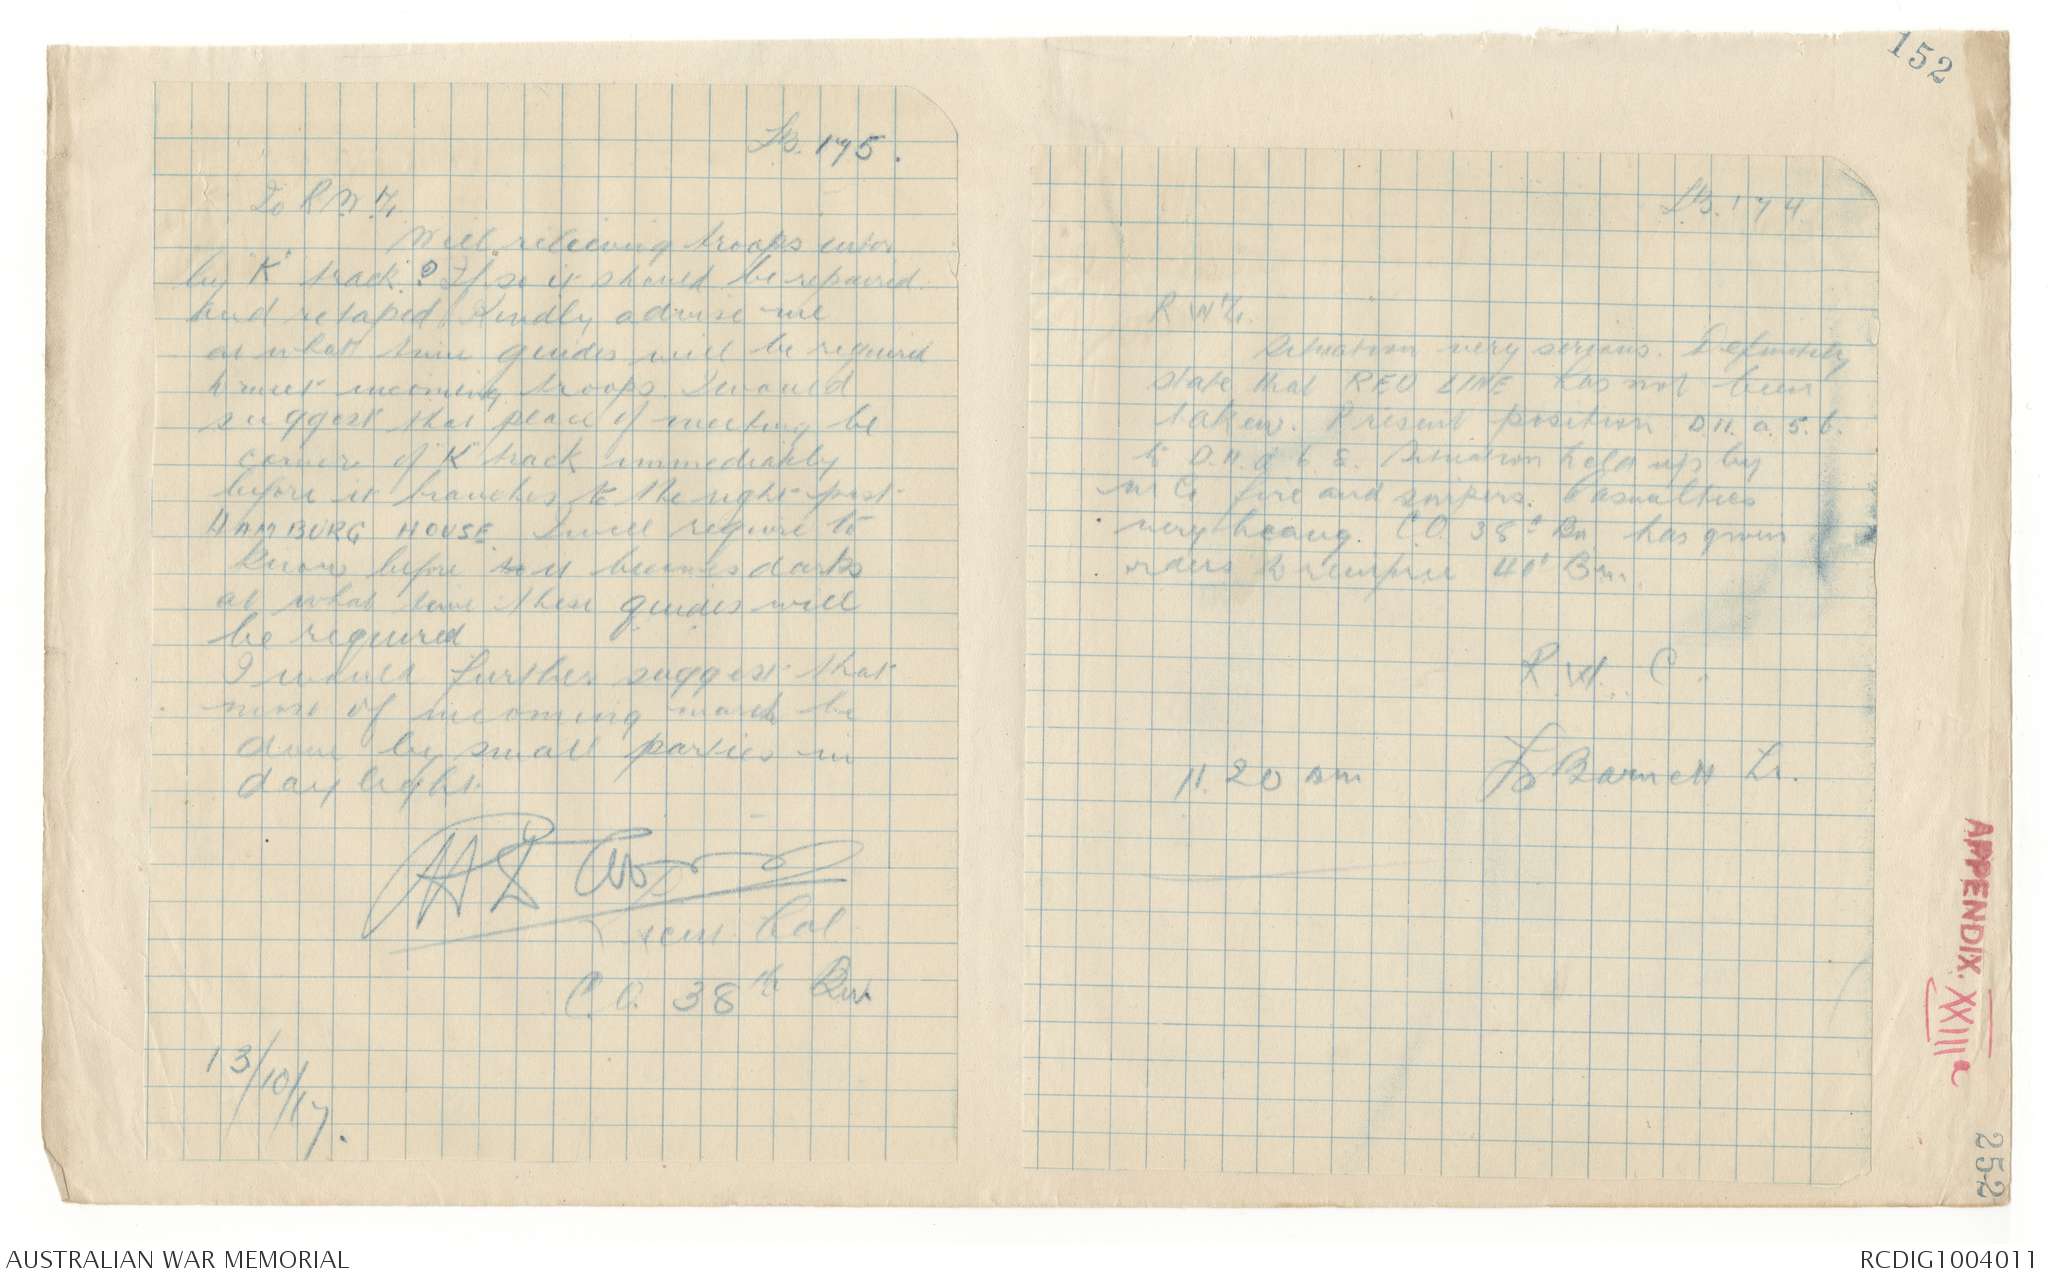 152
LB. 175.
To RWF,
Will relieving troops enter
by "K" track? If so it should be repaired
and retaped. Kindly advise me
at what time guides will be required
to meet incoming troops. I would
suggest that place of meeting be
corner of "K" track immediately
before it branches to the right past
HAMBURG HOUSE. I will require to
know before it becomes dark
at what time these guides will
be required
I would further suggest that
most of incoming march be
done by small parties in
daylight.
Lieut Col
C.O. 38th Bn
13/10/17.
LB. 174
Situation very serious. Definitely
state that RED LINE has not been
taken. Present position D.11.a.5.6.
to D.11.a 6.8. Situation held up by
M G fire and snipers. Casualties
very heavy. C.O. 38th Bn has given
orders to reinforce 41st Bn.
R.W. C.
11.20 am
Barnett Lt.
APPENDIX. XXIII a
252
AUSTRALIAN WAR MEMORIAL
RCDIG1004011